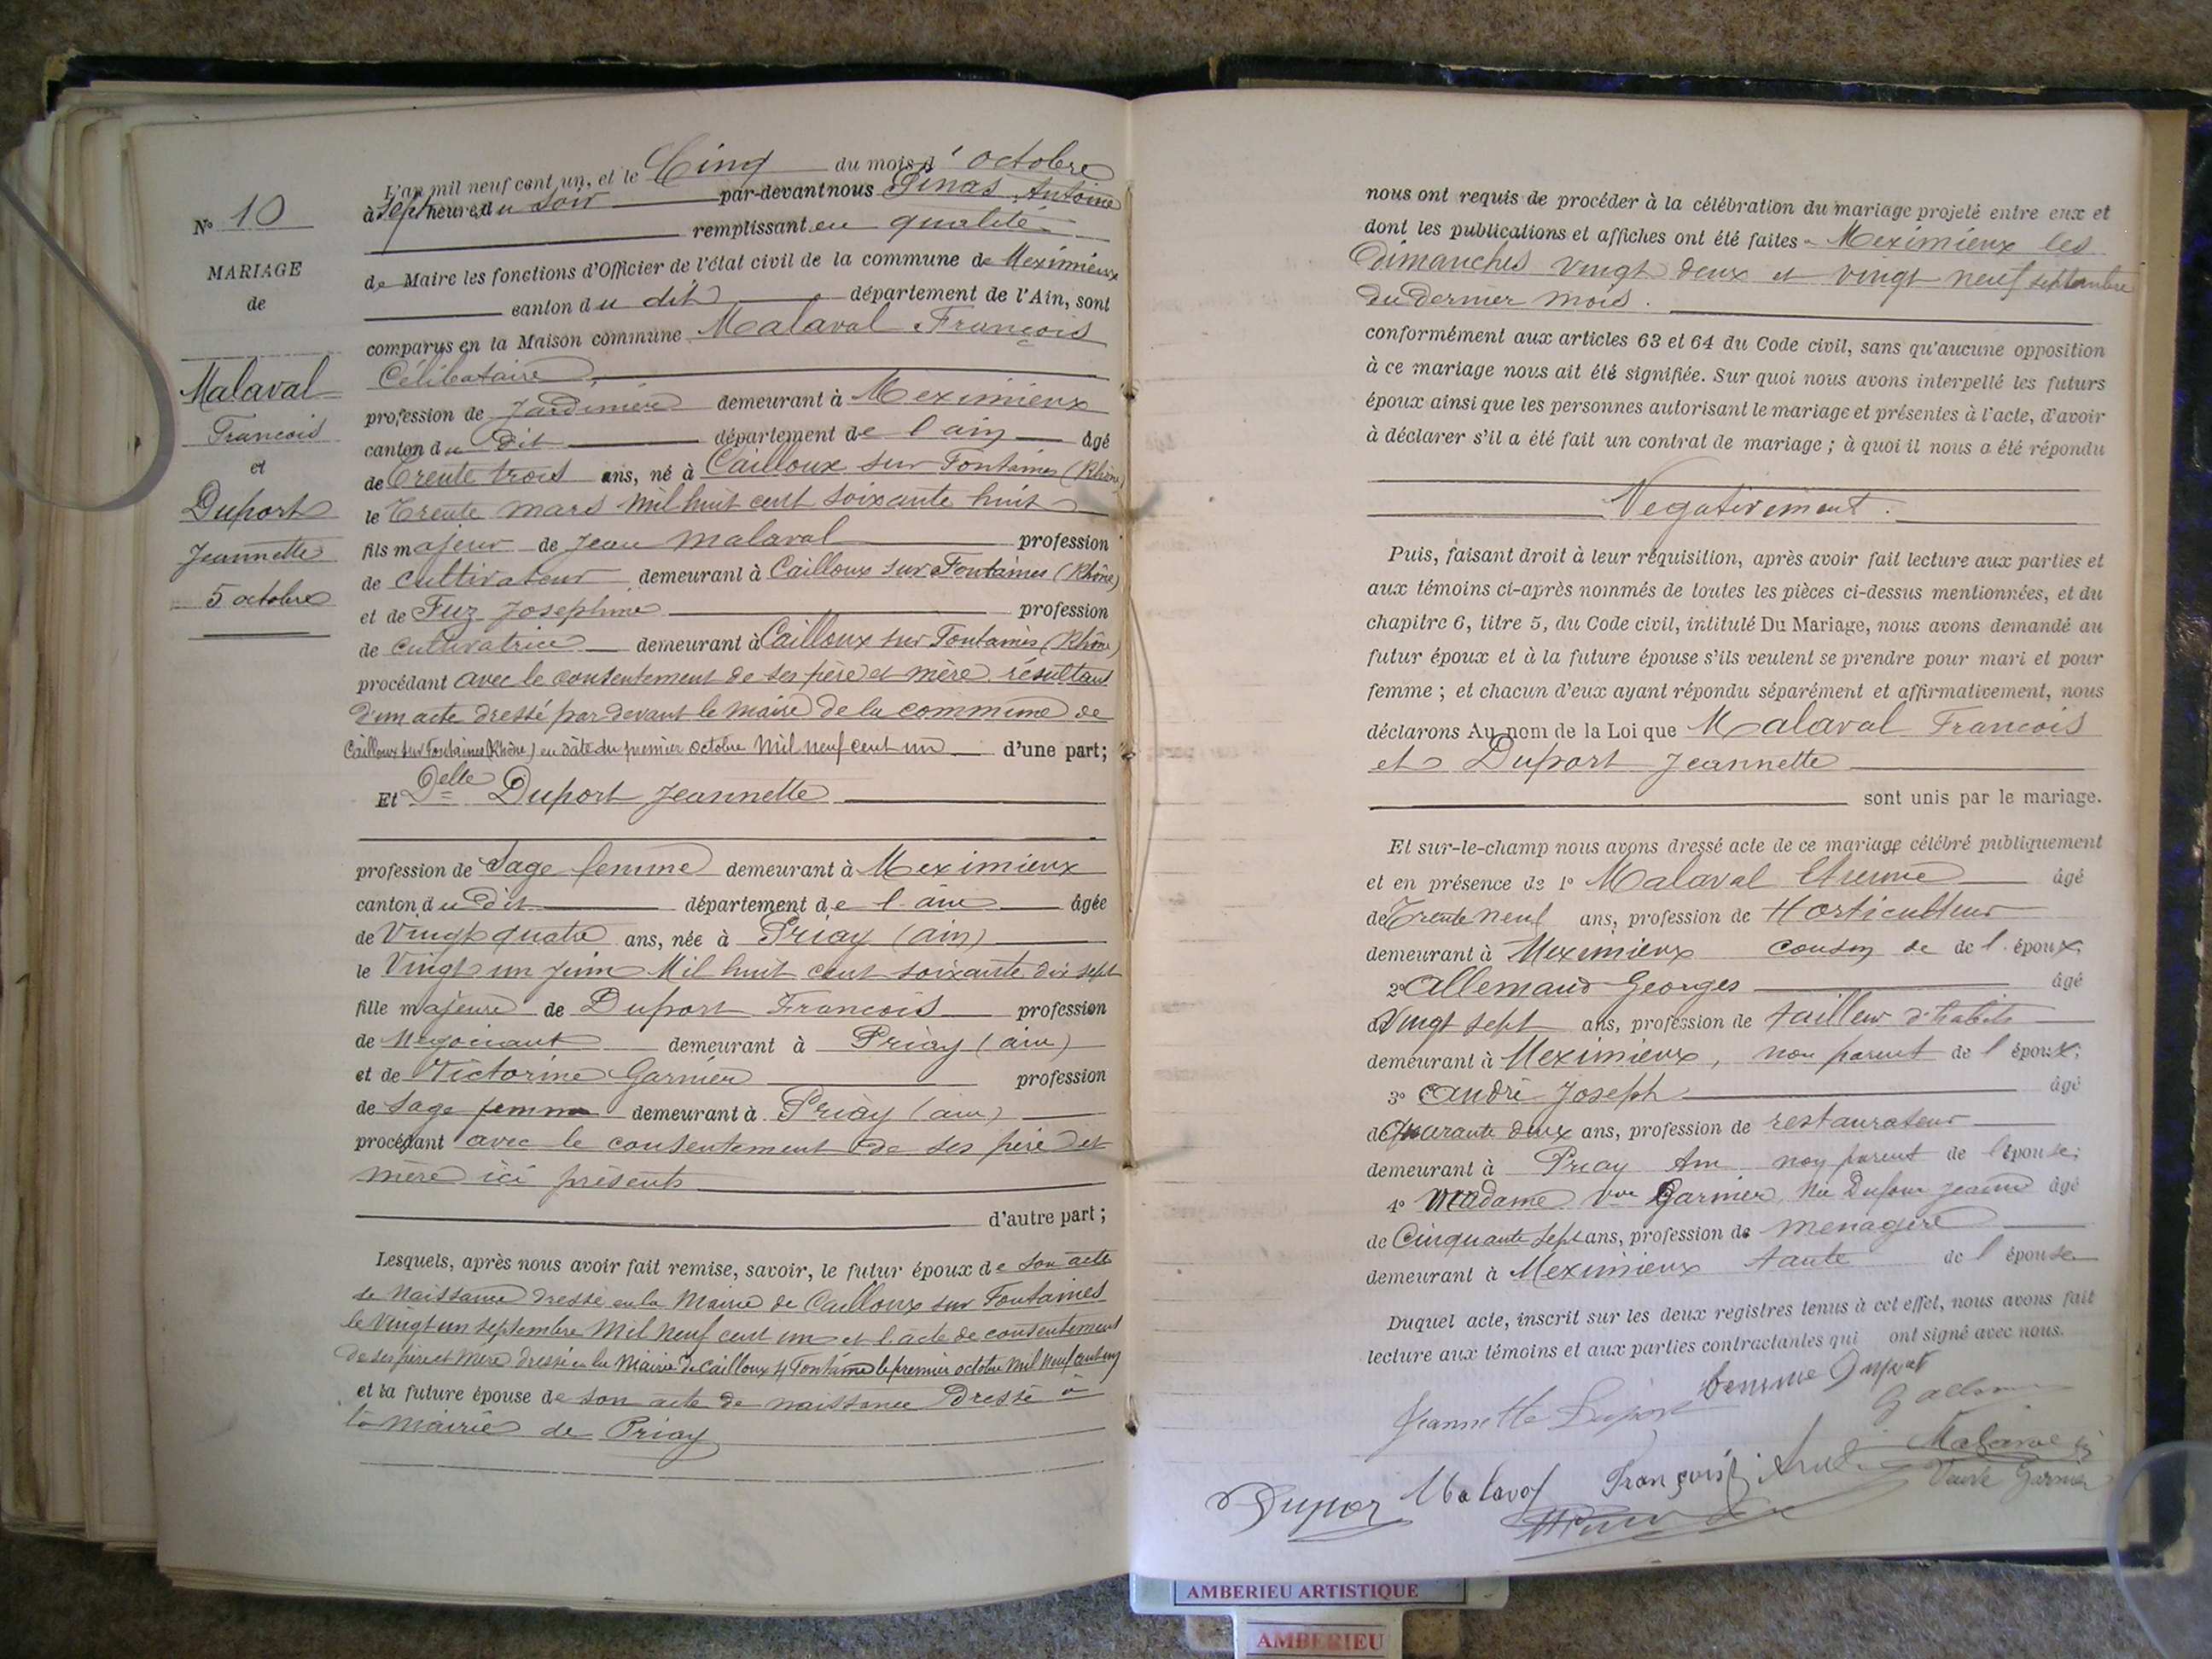 N° 10
MARIAGE
de
Malaval
Francois
et
Duport
Jeannette
5 octobre
L'an mil neuf cent un, et le Cinq du mois d'octobre
à Sept heure du Soir par-devant nous Pinas Antoine
remplissant en qualité
de Maire les fonctions d'Officier de l'état civil de la commune de Meximieux
canton du dit département de l'Ain, sont
comparus en la Maison commune Malaval François
Célibataire
profession de Jardinier demeurant à Meximieux
canton du dit département de l'ain âgé
de Trente trois ans, né à Cailloux sur Fontaines (Rhône)
le Trente mars Mil huit cent soixante huit
fils majeur de Jean Malaval profession
de cultivateur demeurant à Cailloux sur Fontaines (Rhône)
et de Fuz Josephine profession
de cultivatrice demeurant à Cailloux sur Fontaines (Rhône)
procédant avec le consentement de ses père et mère résultant
d'un acte dressé par devant le maire de la commune de
Cailloux sur Fontaines (Rhône) en date du premier octobre Mil neuf cent un d'une part;
Et Delle Duport Jeannette
profession de Sage femme demeurant à Meximieux
canton du dit département de l'ain âgée
de Vingt quatre ans, née à Priay (ain)
le Vingt un Juin Mil huit cent soixante dix sept
fille majeure de Duport Francois profession
de Négociant demeurant à Priay (ain)
et de Victorine Garnier profession
de Sage femme demeurant à Priay (ain)
procédant avec le consentement de ses père et
mère ici présents
d'autre part;
Lesquels, après nous avoir fait remise, savoir, le futur époux de son acte
de Naissance dressé en la Mairie de Cailloux sur Fontaines
le Vingt un septembre Mil Neuf cent un et l'acte de consentement
de ses père et Mère dressé en la Mairie de Cailloux s/ Fontaine le premier octobre Mil Neuf cent un
et la future épouse de son acte de naissance Dressé à
la mairie de Priay
nous ont requis de procéder à la célébration du mariage projeté entre eux et
dont les publications et affiches ont été faites à Meximieux les
Dimanches vingt deux et vingt neuf septembre
du dernier mois.
conformément aux articles 63 et 64 du Code civil, sans qu'aucune opposition
à ce mariage nous ait été signifiée. Sur quoi nous avons interpellé les futurs
époux ainsi que les personnes autorisant le mariage et présentes à l'acte, d'avoir
à déclarer s'il a été fait un contrat de mariage; à quoi il nous a été répondu
Negativement.
Puis, faisant droit à leur réquisition, après avoir fait lecture aux parties et
aux témoins ci-après nommés de toutes les pièces ci-dessus mentionnées, et du
chapitre 6, titre 5, du Code civil, intitulé Du Mariage, nous avons demandé au
futur époux et à la future épouse s'ils veulent se prendre pour mari et pour
femme; et chacun d'eux ayant répondu séparément et affirmativement, nous
déclarons Au nom de la Loi que Malaval Francois
et Duport Jeannette
sont unis par le mariage.
Et sur-le-champ nous avons dressé acte de ce mariage célébré publiquement
et en présence de 1° Malaval Etienne âgé
de Trente neuf ans, profession de Horticulteur
demeurant à Meximieux cousin de de l'époux;
2° Allemand Georges âgé
de Vingt sept ans, profession de tailleur d'habits
demeurant à Meximieux, non parent de l'époux;
3° André Joseph âgé
de quarante deux ans, profession de restaurateur
demeurant à Priay Ain non parent de l'épouse;
4° Madame Vve Garnier, Née Dufour Jeanne âgé
de Cinquante sept ans, profession de menagère
demeurant à Meximieux tante de l'épouse
Duquel acte, inscrit sur les deux registres tenus à cet effet, nous avons fait
lecture aux témoins et aux parties contractantes qui ont signé avec nous.
Jeannette Duport femme Duport
Malaval
Dupor Malaval François Veuve Garnier
AMBERIEU ARTISTIQUE
AMBERIEU